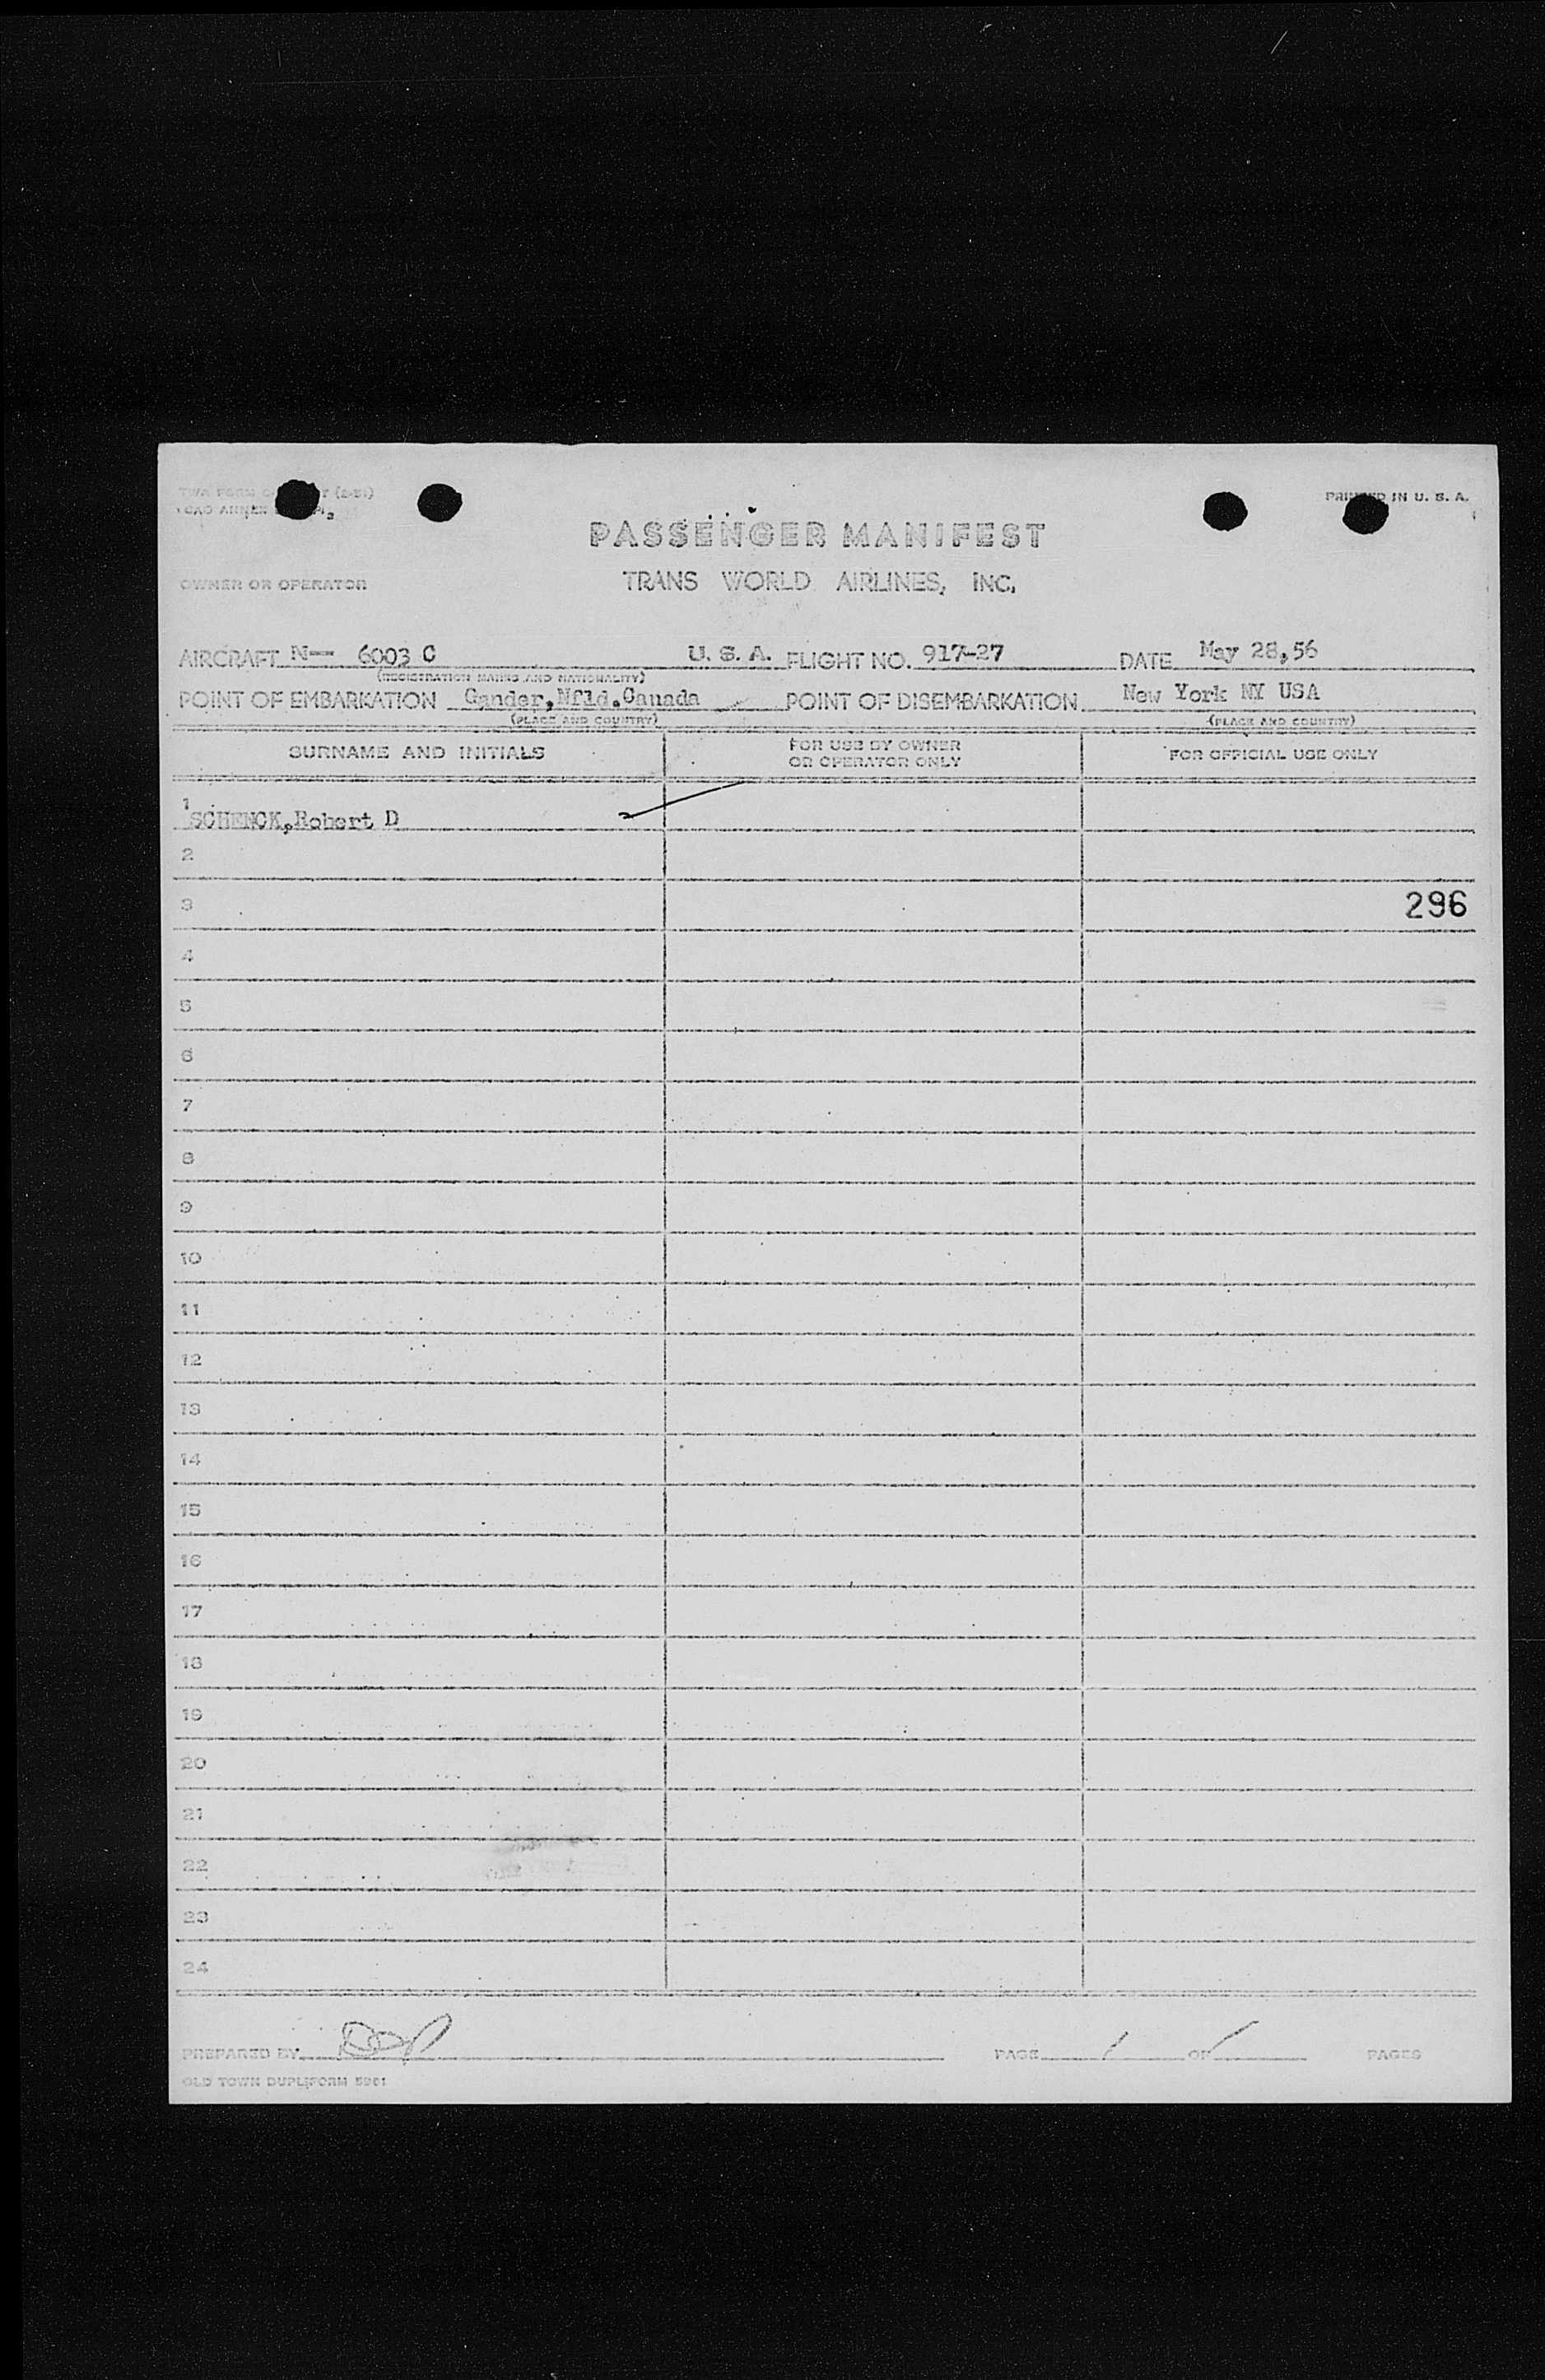 TWA FORM (2-51)
ICAO ANNEX
PRINTED IN U. S. A.
PASSENGER MANIFEST
OWNER OR OPERATOR
TRANS WORLD AIRLINES, INC.
AIRCRAFT N— 6003 C U. S. A. FLIGHT NO. 917-27 DATE May 28,56
(REGISTRATION MARKS AND NATIONALITY)
POINT OF EMBARKATION Gander,Nfld.Canada POINT OF DISEMBARKATION New York NY USA
(PLACE AND COUNTRY) (PLACE AND COUNTRY)
SURNAME AND INITIALS FOR USE BY OWNER OR OPERATOR ONLY FOR OFFICIAL USE ONLY
1 SCHENCK,Robert D
2
3 296
4
5
6
7
8
9
10
11
12
13
14
15
16
17
18
19
20
21
22
23
24
PREPARED BY PAGE 1 OF 1 PAGES
OLD TOWN DUPLIFORM